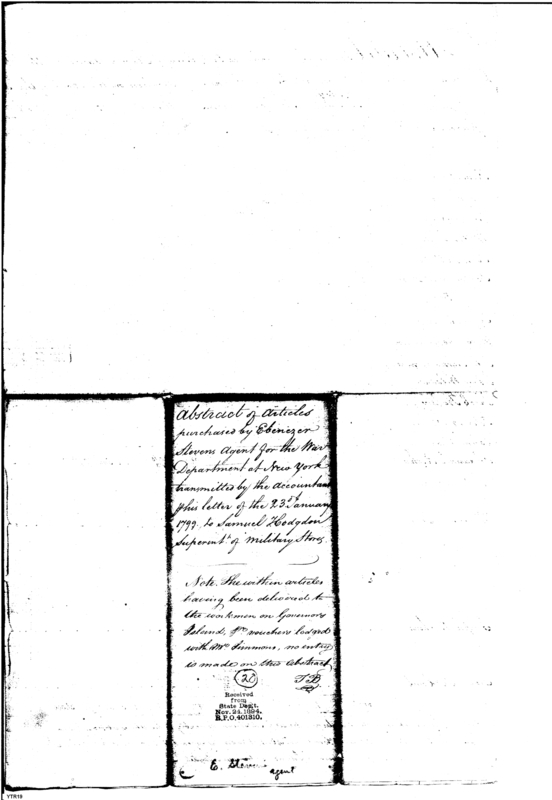 Abstract of Articles
purchased by Ebenezer
Stevens Agent for the War
Department at New York
transmitted by the Accountant
p his letter of the 23d January
1799. to Samuel Hodgdon
Superintt of Military Stores.
Note. The within articles
having been delivered to
the workmen on Governors
Island, pr vouchers lodged
with Mr Simmons, no entry
is made on this Abstract
20
TB
Received
from
State Dept.
Nov. 24, 1894.
R.P.O. 401310.
E. Steven
agent
YTR19